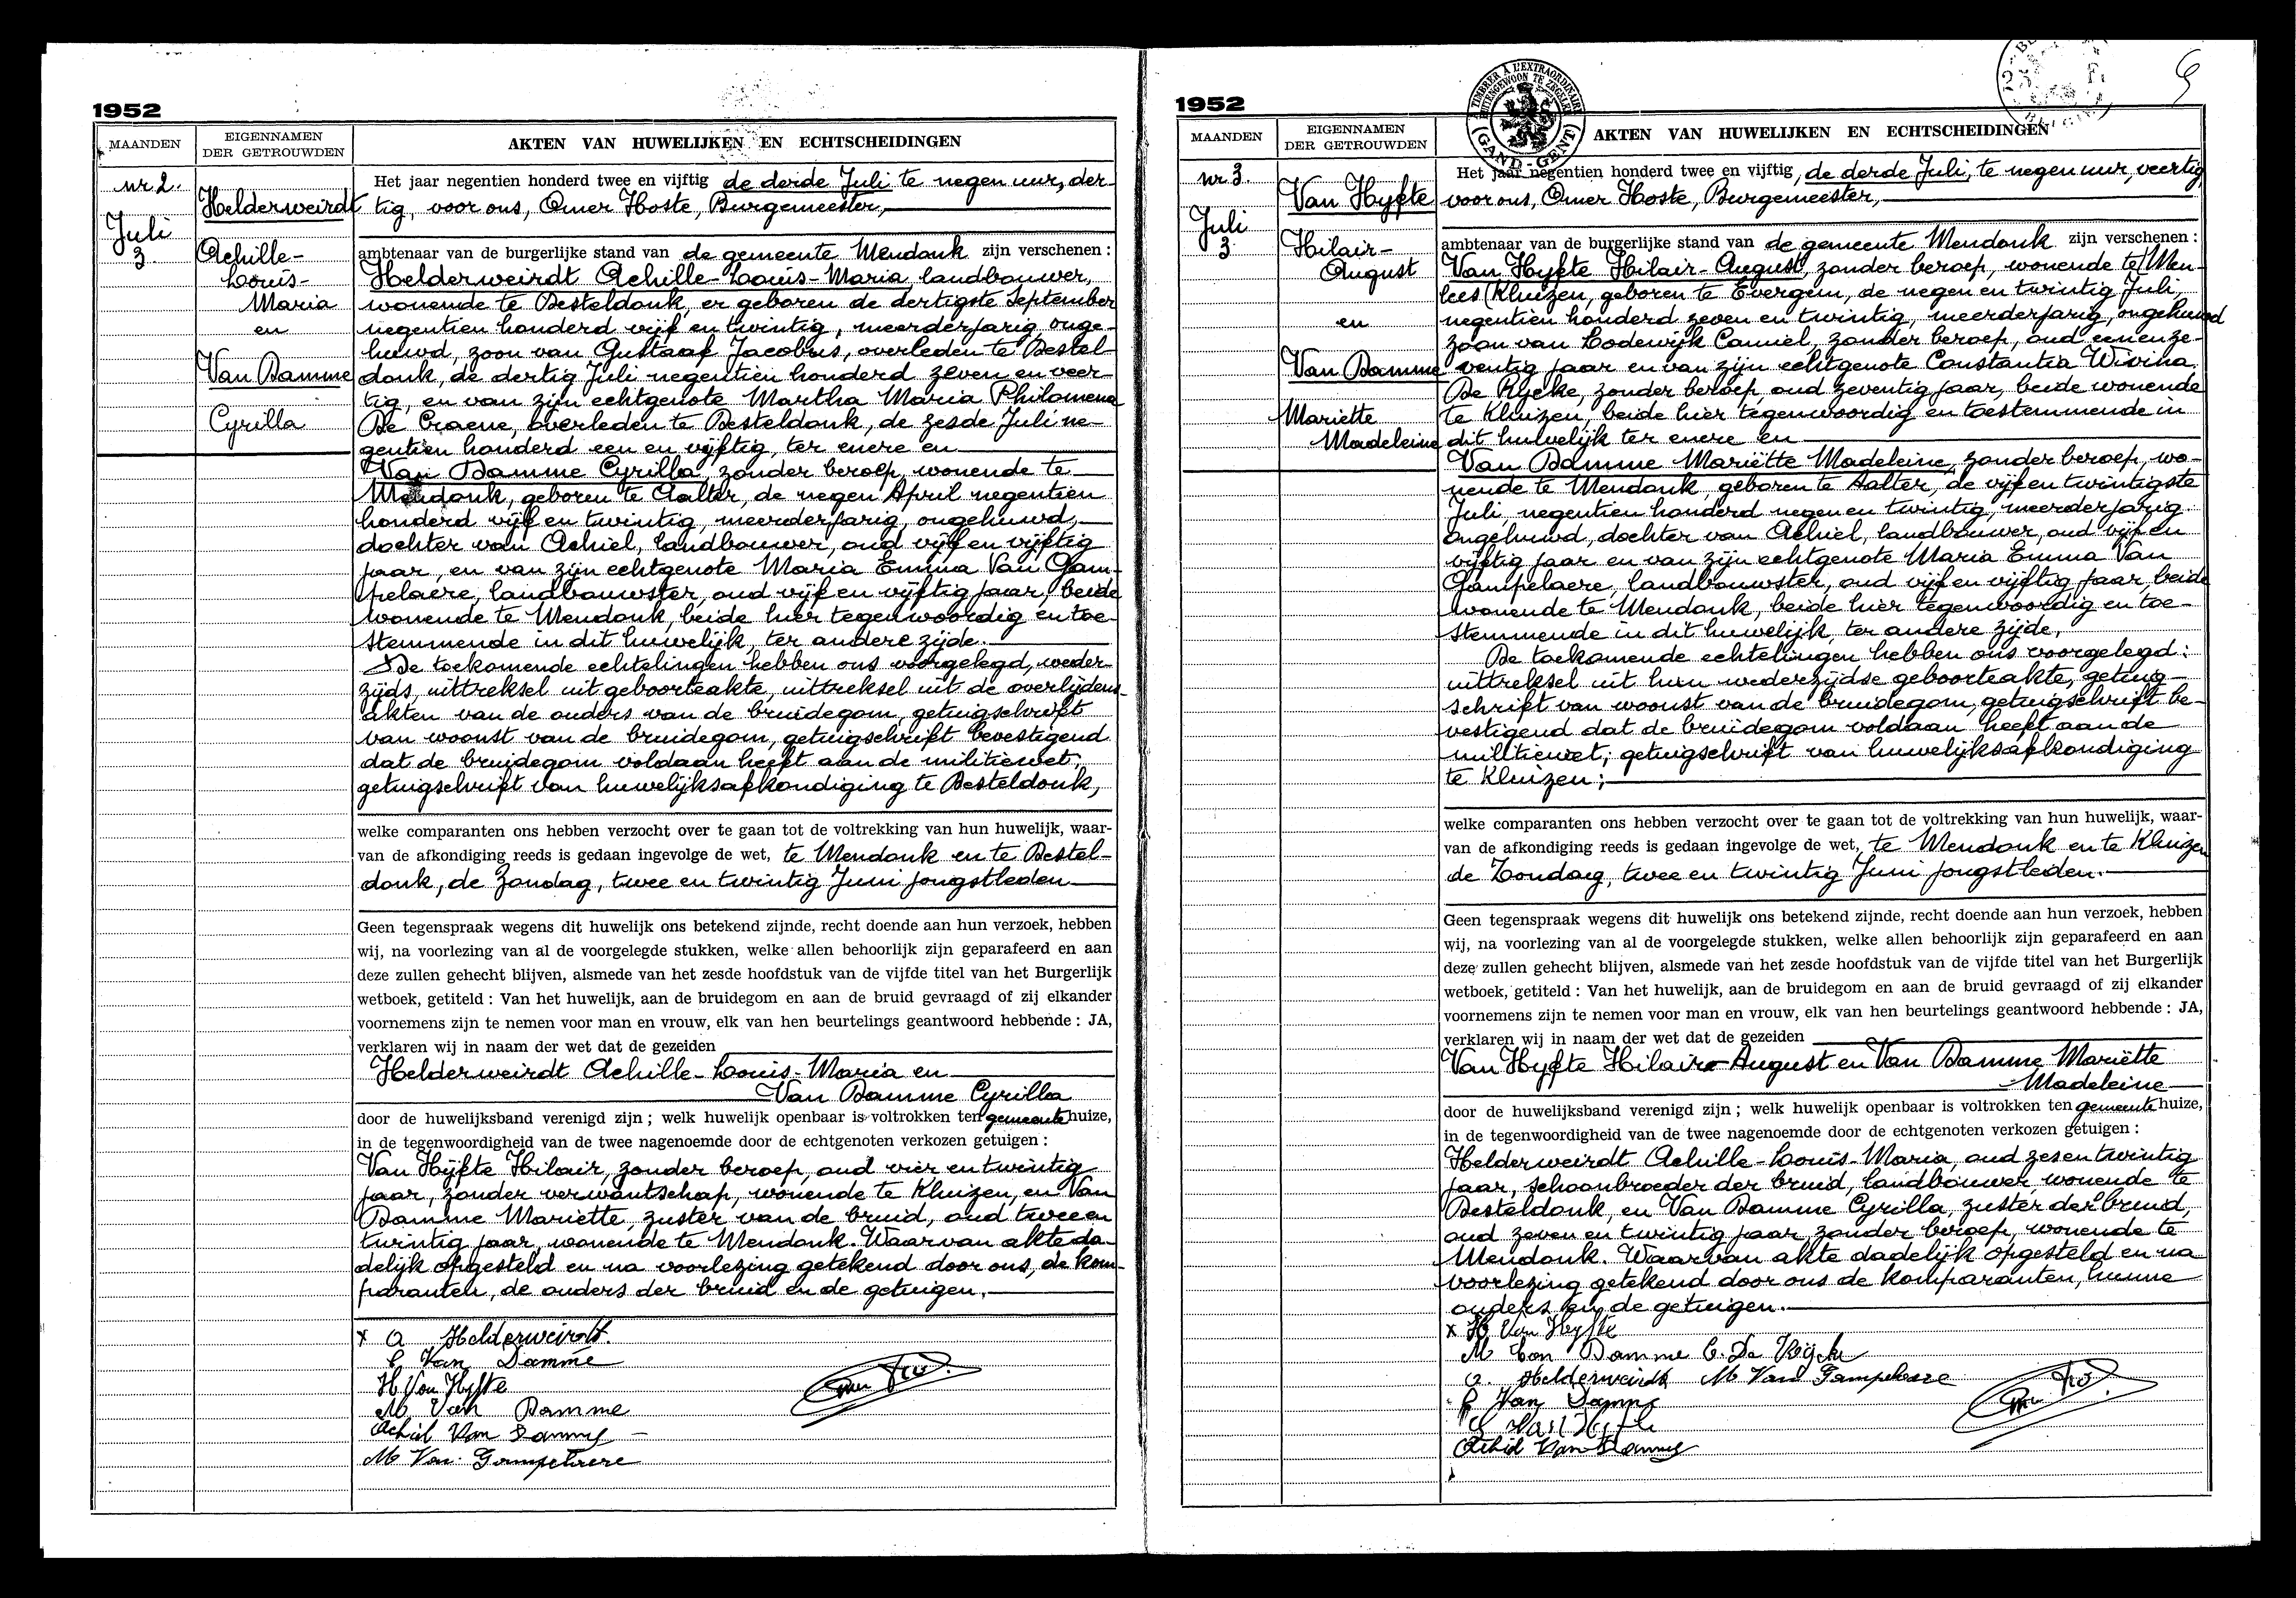 1952
MAANDEN
EIGENNAMEN
DER GETROUWDEN
AKTEN VAN HUWELIJKEN EN ECHTSCHEIDINGEN
nr 2.
Juli
3.
Helderweirdt
Achille-
Louis-
Maria
en
Van Damme
Cyrilla
Het jaar negentien honderd twee en vijftig de derde Juli te negen uur, der-
tig, voor ons, Omer Hoste, Burgemeester,
ambtenaar van de burgerlijke stand van de gemeente Mendonk zijn verschenen :
Helderweirdt Achille-Louis-Maria, landbouwer,
wonende te Desteldonk, er geboren de dertigste September
negentien honderd vijf en twintig, meerderjarig, onge-
huwd, zoon van Gustaaf Jacobus, overleden te Destel-
donk, de dertig Juli negentien honderd zeven en veer-
tig, en van zijn echtgenote Martha Maria Philomena
De Craene, overleden te Desteldonk, de zesde Juli ne-
gentien honderd een en vijftig, ter enere en
Van Damme Cyrilla, zonder beroep, wonende te
Mendonk, geboren te Aalter, de negen April negentien
honderd vijf en twintig, meerderjarig, ongehuwd,
dochter van Achiel, landbouwer, oud vijf en vijftig
jaar, en van zijn echtgenote Maria Emma Van Gam-
pelaere, landbouwster, oud vijf en vijftig jaar, beide
wonende te Mendonk, beide hier tegenwoordig en toe-
stemmende in dit huwelijk, ter andere zijde.
De toekomende echtelingen hebben ons voorgelegd, weder-
zijds, uittreksel uit geboorteakte, uittreksel uit de overlijdens-
akten van de ouders van de bruidegom, getuigschrift
van woonst van de bruidegom, getuigschrift bevestigend
dat de bruidegom voldaan heeft aan de militiewet;
getuigschrift van huwelijksafkondiging te Desteldonk,
welke comparanten ons hebben verzocht over te gaan tot de voltrekking van hun huwelijk, waar-
van de afkondiging reeds is gedaan ingevolge de wet, te Mendonk en te Destel-
donk, de Zondag, twee en twintig Juni jongstleden
Geen tegenspraak wegens dit huwelijk ons betekend zijnde, recht doende aan hun verzoek, hebben
wij, na voorlezing van al de voorgelegde stukken, welke allen behoorlijk zijn geparafeerd en aan
deze zullen gehecht blijven, alsmede van het zesde hoofdstuk van de vijfde titel van het Burgerlijk
wetboek, getiteld : Van het huwelijk, aan de bruidegom en aan de bruid gevraagd of zij elkander
voornemens zijn te nemen voor man en vrouw, elk van hen beurtelings geantwoord hebbende : JA,
verklaren wij in naam der wet dat de gezeiden
Helderweirdt Achille-Louis-Maria en
Van Damme Cyrilla
door de huwelijksband verenigd zijn ; welk huwelijk openbaar is voltrokken ten gemeente huize,
in de tegenwoordigheid van de twee nagenoemde door de echtgenoten verkozen getuigen :
Van Hyfte Hilair, zonder beroep, oud vier en twintig
jaar, zonder verwantschap, wonende te Kluizen, en Van
Damme Mariette, zuster van de bruid, oud twee en
twintig jaar, wonende te Mendonk. Waarvan akte da-
delijk opgesteld en na voorlezing getekend door ons, de kom-
paranten, de ouders der bruid en de getuigen.
x A Helderweirdt.
C Van Damme
H Van Hyfte
M Van Damme
Achiel Van Damme
M Van Gampelaere
1952
MAANDEN
EIGENNAMEN
DER GETROUWDEN
TIMBRE A L'EXTRAORDINAIRE
BUITENGEWOON TE ZEGELEN
(GAND-GENT)
AKTEN VAN HUWELIJKEN EN ECHTSCHEIDINGEN
nr 3.
Juli
3.
Van Hyfte
Hilair-
August
en
Van Damme
Mariette
Madeleine
Het jaar negentien honderd twee en vijftig, de derde Juli, te negen uur, veertig
voor ons, Omer Hoste, Burgemeester,
ambtenaar van de burgerlijke stand van de gemeente Mendonk zijn verschenen :
Van Hyfte Hilair-August, zonder beroep, wonende te/Men-
lees/Kluizen, geboren te Evergem, de negen en twintig Juli,
negentien honderd zeven en twintig, meerderjarig, ongehuwd
zoon van Lodewijk Camiel, zonder beroep, oud een en ze-
ventig jaar en van zijn echtgenote Constantia Wivina
De Rycke, zonder beroep, oud zeventig jaar, beide wonende
te Kluizen, beide hier tegenwoordig en toestemmende in
dit huwelijk ter enere en
Van Damme Mariëtte Madeleine, zonder beroep, wo-
nende te Mendonk, geboren te Aalter, de vijf en twintigste
Juli, negentien honderd negen en twintig, meerderjarig
ongehuwd, dochter van Achiel, landbouwer, oud vijf en
vijftig jaar en van zijn echtgenote Maria Emma Van
Gampelaere, landbouwster, oud vijf en vijftig jaar, beide
wonende te Mendonk, beide hier tegenwoordig en toe-
stemmende in dit huwelijk, ter andere zijde.
De toekomende echtelingen hebben ons voorgelegd:
uittreksel uit hun wederzijdse geboorteakte, getuig-
schrift van woonst van de bruidegom, getuigschrift be-
vestigend dat de bruidegom voldaan heeft aan de
militiewet; getuigschrift van huwelijksafkondiging
te Kluizen;
welke comparanten ons hebben verzocht over te gaan tot de voltrekking van hun huwelijk, waar-
van de afkondiging reeds is gedaan ingevolge de wet, te Mendonk en te Kluizen
de Zondag, twee en twintig Juni jongstleden.
Geen tegenspraak wegens dit huwelijk ons betekend zijnde, recht doende aan hun verzoek, hebben
wij, na voorlezing van al de voorgelegde stukken, welke allen behoorlijk zijn geparafeerd en aan
deze zullen gehecht blijven, alsmede van het zesde hoofdstuk van de vijfde titel van het Burgerlijk
wetboek, getiteld : Van het huwelijk, aan de bruidegom en aan de bruid gevraagd of zij elkander
voornemens zijn te nemen voor man en vrouw, elk van hen beurtelings geantwoord hebbende : JA,
verklaren wij in naam der wet dat de gezeiden
Van Hyfte Hilair-August en Van Damme Mariëtte
Madeleine
door de huwelijksband verenigd zijn ; welk huwelijk openbaar is voltrokken ten gemeente huize,
in de tegenwoordigheid van de twee nagenoemde door de echtgenoten verkozen getuigen :
Helderweirdt Achille-Louis-Maria, oud zes en twintig
jaar, schoonbroeder der bruid, landbouwer, wonende te
Desteldonk, en Van Damme Cyrilla, zuster der bruid,
oud zeven en twintig jaar, zonder beroep, wonende te
Mendonk. Waarvan akte dadelijk opgesteld en na
voorlezing getekend door ons de komparanten, hunne
ouders en de getuigen.
x H Van Hyfte
M Van Damme C. De Rijcke
A. Helderweirdt M Van Gampelaere
C Van Damme
Van Hyfte
Achiel Van Damme